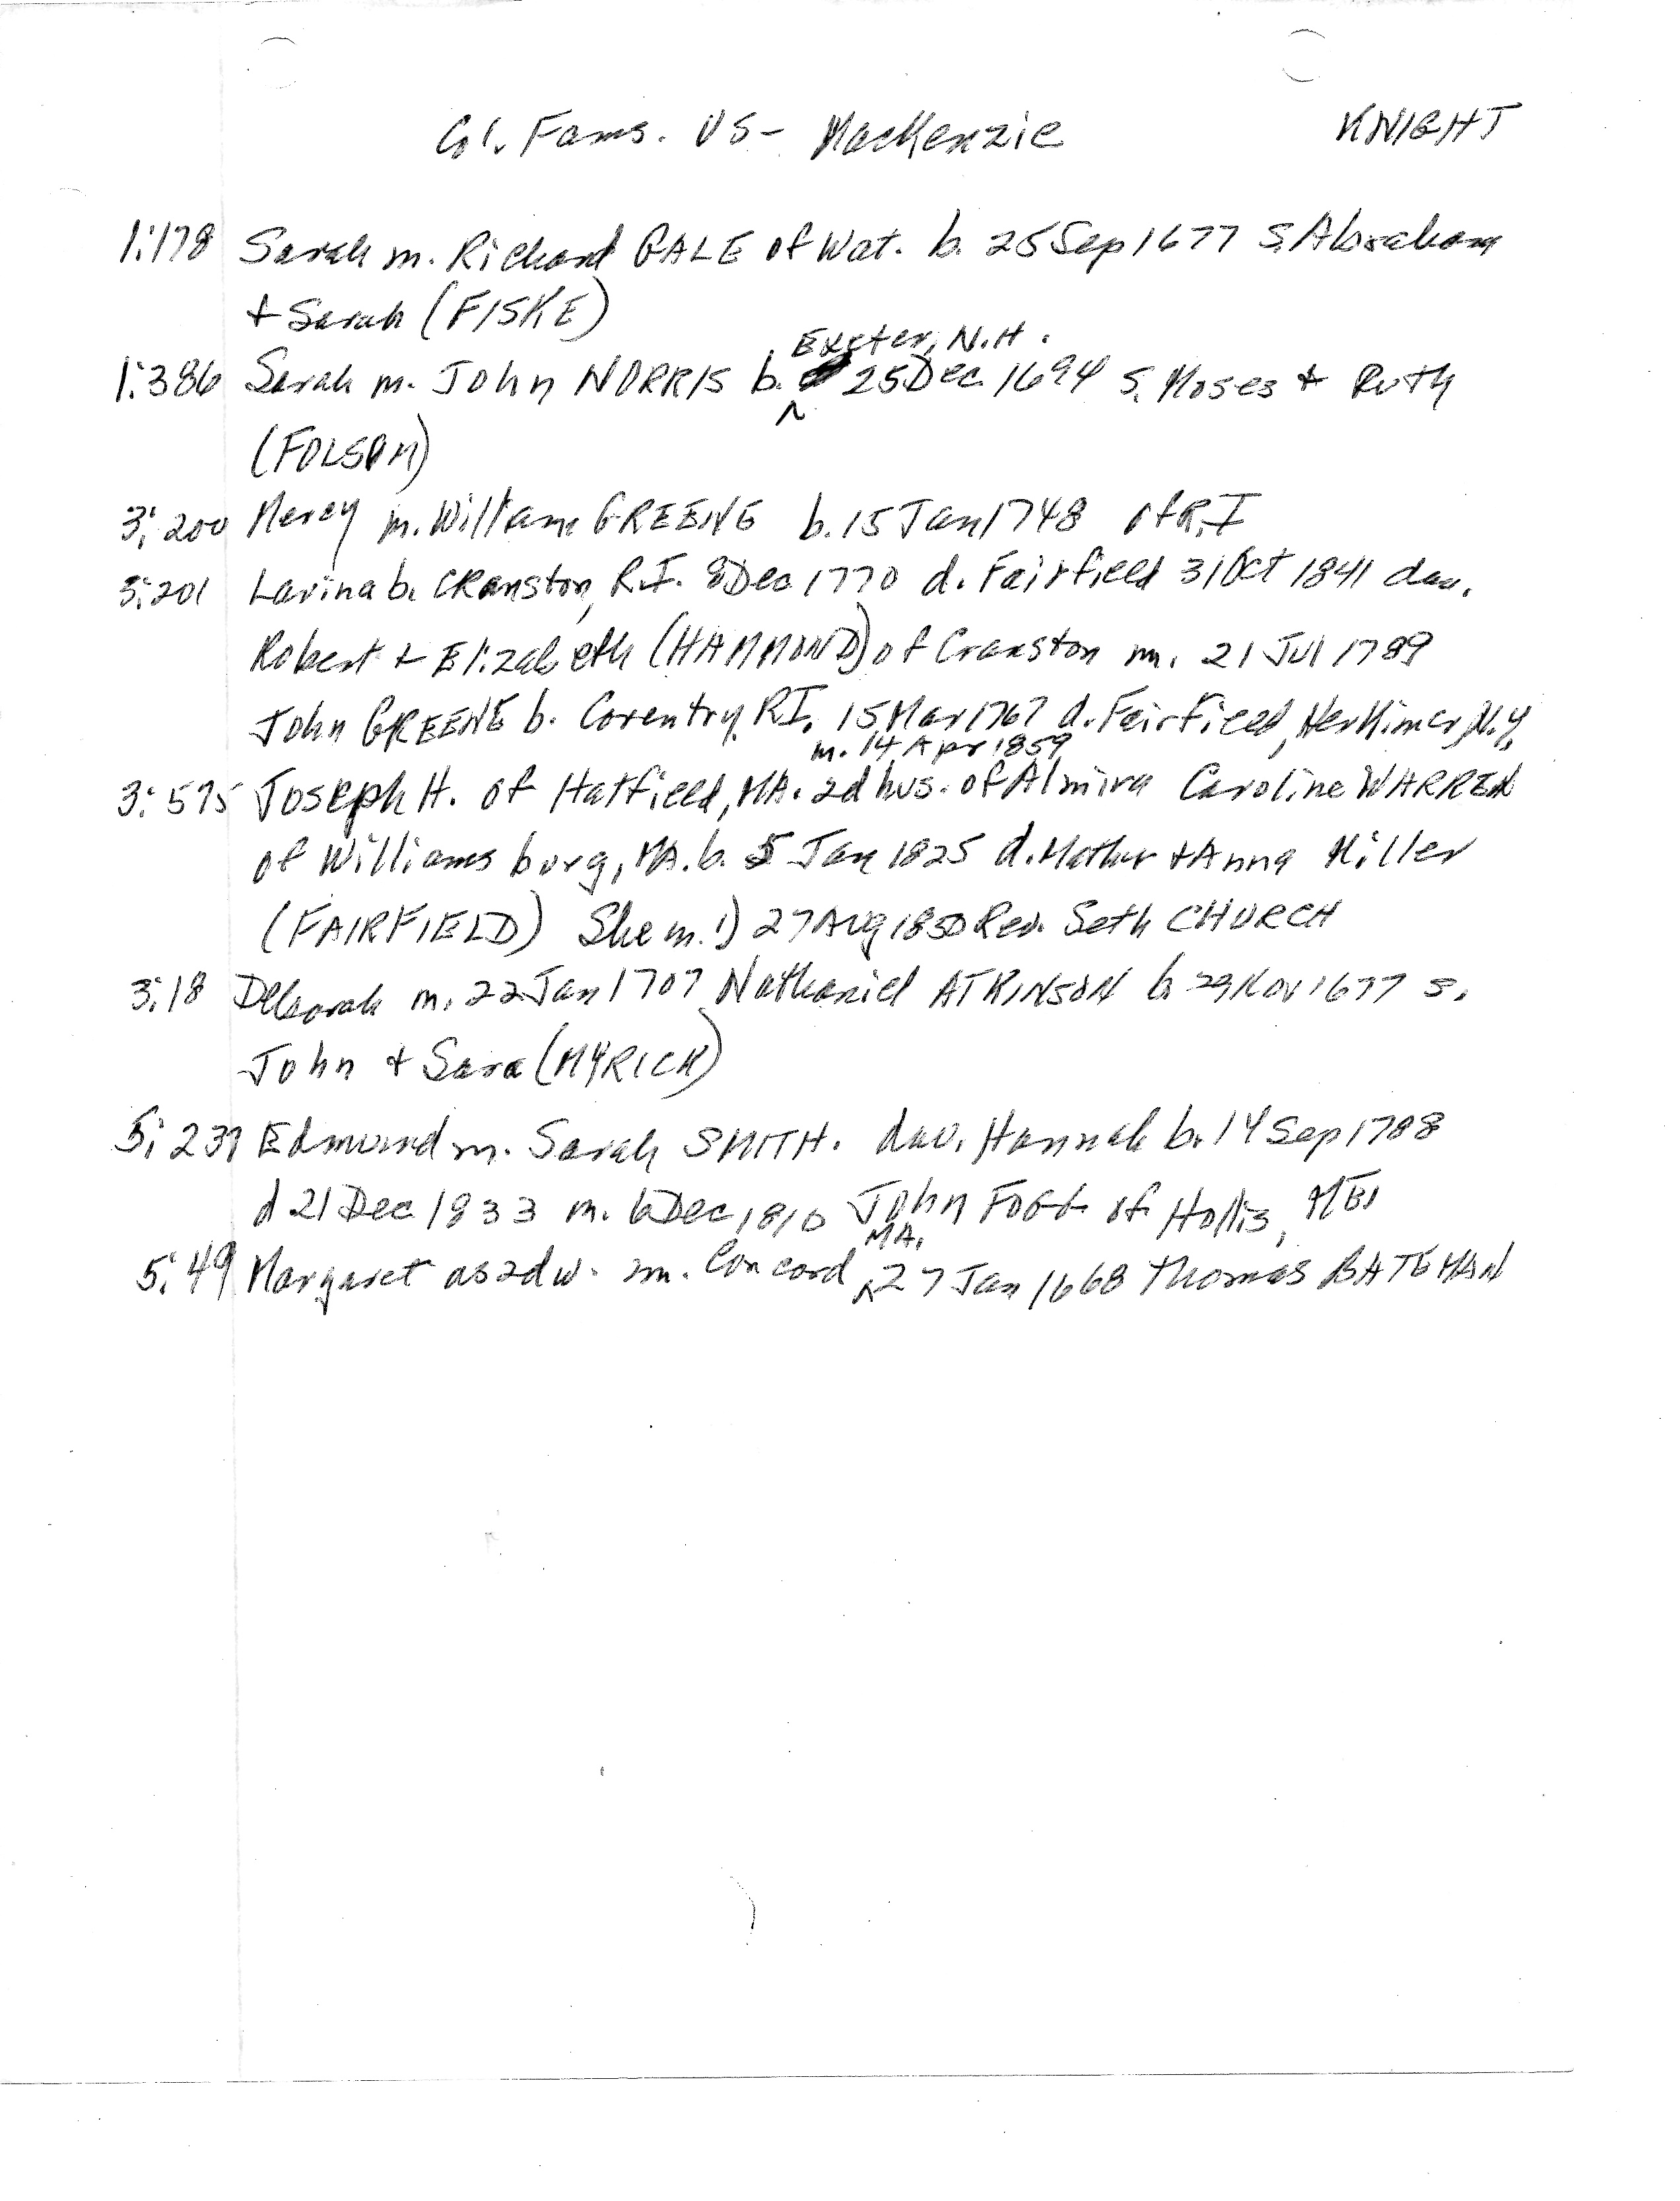 Col. Fams. US - MacKenzie KNIGHT
1:178 Sarah m. Richard GALE of Wat. b. 25 Sep 1677 S. Abraham
+ Sarah (FISKE)
Exeter, N.H.
1:386 Sarah m. John NORRIS b. ^ 25 Dec. 1694 S. Moses + Ruth
(FOLSOM)
3:200 Mercy m. William GREENE b. 15 Jan 1748 of R.I
3:201 Lavina b. CRanston, R.I. 8 Dec 1770 d. Fairfield 31 Oct 1841 dau.
Robert + Elizabeth (HAMMOND) of Cranston m. 21 Jul 1789
John GREENE b. Coventry, RI. 15 Mar 1767 d. Fairfield, Herkimer, N.Y.
m. 14 Apr 1859
3:575 Joseph H. of Hatfield, MA. 2d hus. of Almira Caroline WARREN
of Williamsburg, MA. b. 5 Jan 1825 d. Mather + Anna Miller
(FAIRFIELD) She m. 1) 27 Aug 1850 Rev. Seth CHURCH
3:18 Deborah m. 22 Jan 1707 Nathaniel ATKINSON b. 29 Nov 1677 s.
John + Sara (MYRICK)
5:239 Edmund m. Sarah SMITH. dau. Hannah b. 14 Sep 1788
d 21 Dec 1833 m. 6 Dec, 1810 John FOGG of Hollis,
MA.
5:49 Margaret as 2d w. m. Concord ^ 27 Jan 1668 Thomas BATEMAN